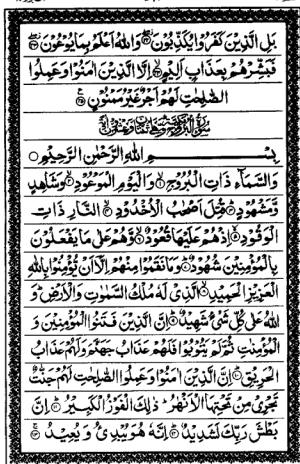 بَلِ الَّذِيْنَ كَفَرُوْا يُكَذِّبُوْنَ ۝۲۲ وَاللّٰهُ اَعْلَمُ بِمَا يُوْعُوْنَ ۝۲۳
فَبَشِّرْهُمْ بِعَذَابٍ اَلِيْمٍ ۝۲۴ اِلَّا الَّذِيْنَ اٰمَنُوْا وَعَمِلُوا
الصّٰلِحٰتِ لَهُمْ اَجْرٌ غَيْرُ مَمْنُوْنٍ ۝۲۵
بِسْمِ اللّٰهِ الرَّحْمٰنِ الرَّحِيْمِ ۝
وَالسَّمَآءِ ذَاتِ الْبُرُوْجِ ۝۱ وَالْيَوْمِ الْمَوْعُوْدِ ۝۲ وَشَاهِدٍ
وَّمَشْهُوْدٍ ۝۳ قُتِلَ اَصْحٰبُ الْاُخْدُوْدِ ۝۴ النَّارِ ذَاتِ
الْوَقُوْدِ ۝۵ اِذْ هُمْ عَلَيْهَا قُعُوْدٌ ۝۶ وَّهُمْ عَلٰى مَا يَفْعَلُوْنَ
بِالْمُؤْمِنِيْنَ شُهُوْدٌ ۝۷ وَمَا نَقَمُوْا مِنْهُمْ اِلَّآ اَنْ يُّؤْمِنُوْا بِاللّٰهِ
الْعَزِيْزِ الْحَمِيْدِ ۝۸ الَّذِيْ لَهٗ مُلْكُ السَّمٰوٰتِ وَالْاَرْضِ ؕ وَ
اللّٰهُ عَلٰى كُلِّ شَيْءٍ شَهِيْدٌ ۝۹ اِنَّ الَّذِيْنَ فَتَنُوا الْمُؤْمِنِيْنَ وَ
الْمُؤْمِنٰتِ ثُمَّ لَمْ يَتُوْبُوْا فَلَهُمْ عَذَابُ جَهَنَّمَ وَلَهُمْ عَذَابُ
الْحَرِيْقِ ۝۱۰ اِنَّ الَّذِيْنَ اٰمَنُوْا وَعَمِلُوا الصّٰلِحٰتِ لَهُمْ جَنّٰتٌ
تَجْرِيْ مِنْ تَحْتِهَا الْاَنْهٰرُ ؕ ذٰلِكَ الْفَوْزُ الْكَبِيْرُ ۝۱۱ اِنَّ
بَطْشَ رَبِّكَ لَشَدِيْدٌ ۝۱۲ اِنَّهٗ هُوَ يُبْدِئُ وَيُعِيْدُ ۝۱۳